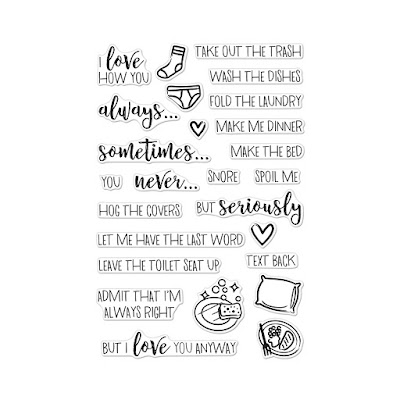 I love
HOW YOU
TAKE OUT THE TRASH
WASH THE DISHES
FOLD THE LAUNDRY
always...
MAKE ME DINNER
sometimes...
MAKE THE BED
YOU
never...
SNORE
SPOIL ME
HOG THE COVERS
BUT seriously
LET ME HAVE THE LAST WORD
LEAVE THE TOILET SEAT UP
TEXT BACK
ADMIT THAT I'M
ALWAYS RIGHT
BUT I love YOU ANYWAY